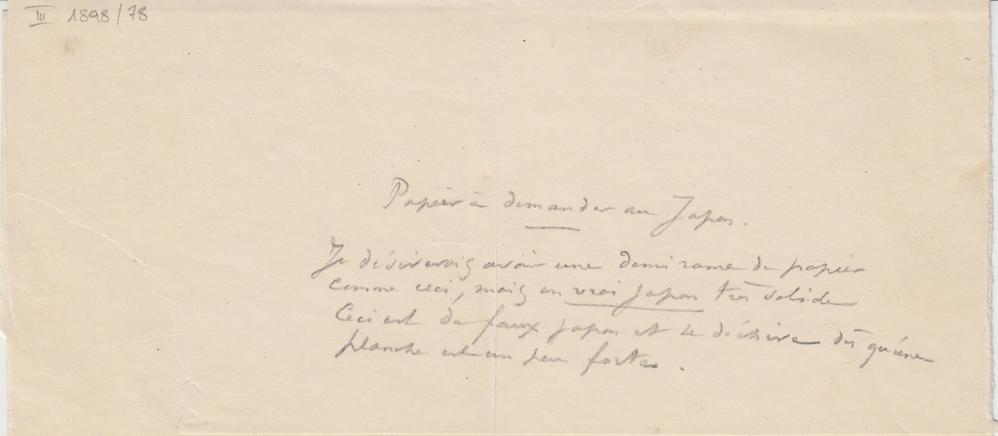 III 1898/78
Papier à demander au Japon.
Je désirerais avoir une demi rame de papier
comme ceci, mais en vrai Japon très solide
Ceci est du faux Japon et se déchire dès qu'une
planche est un peu forte.